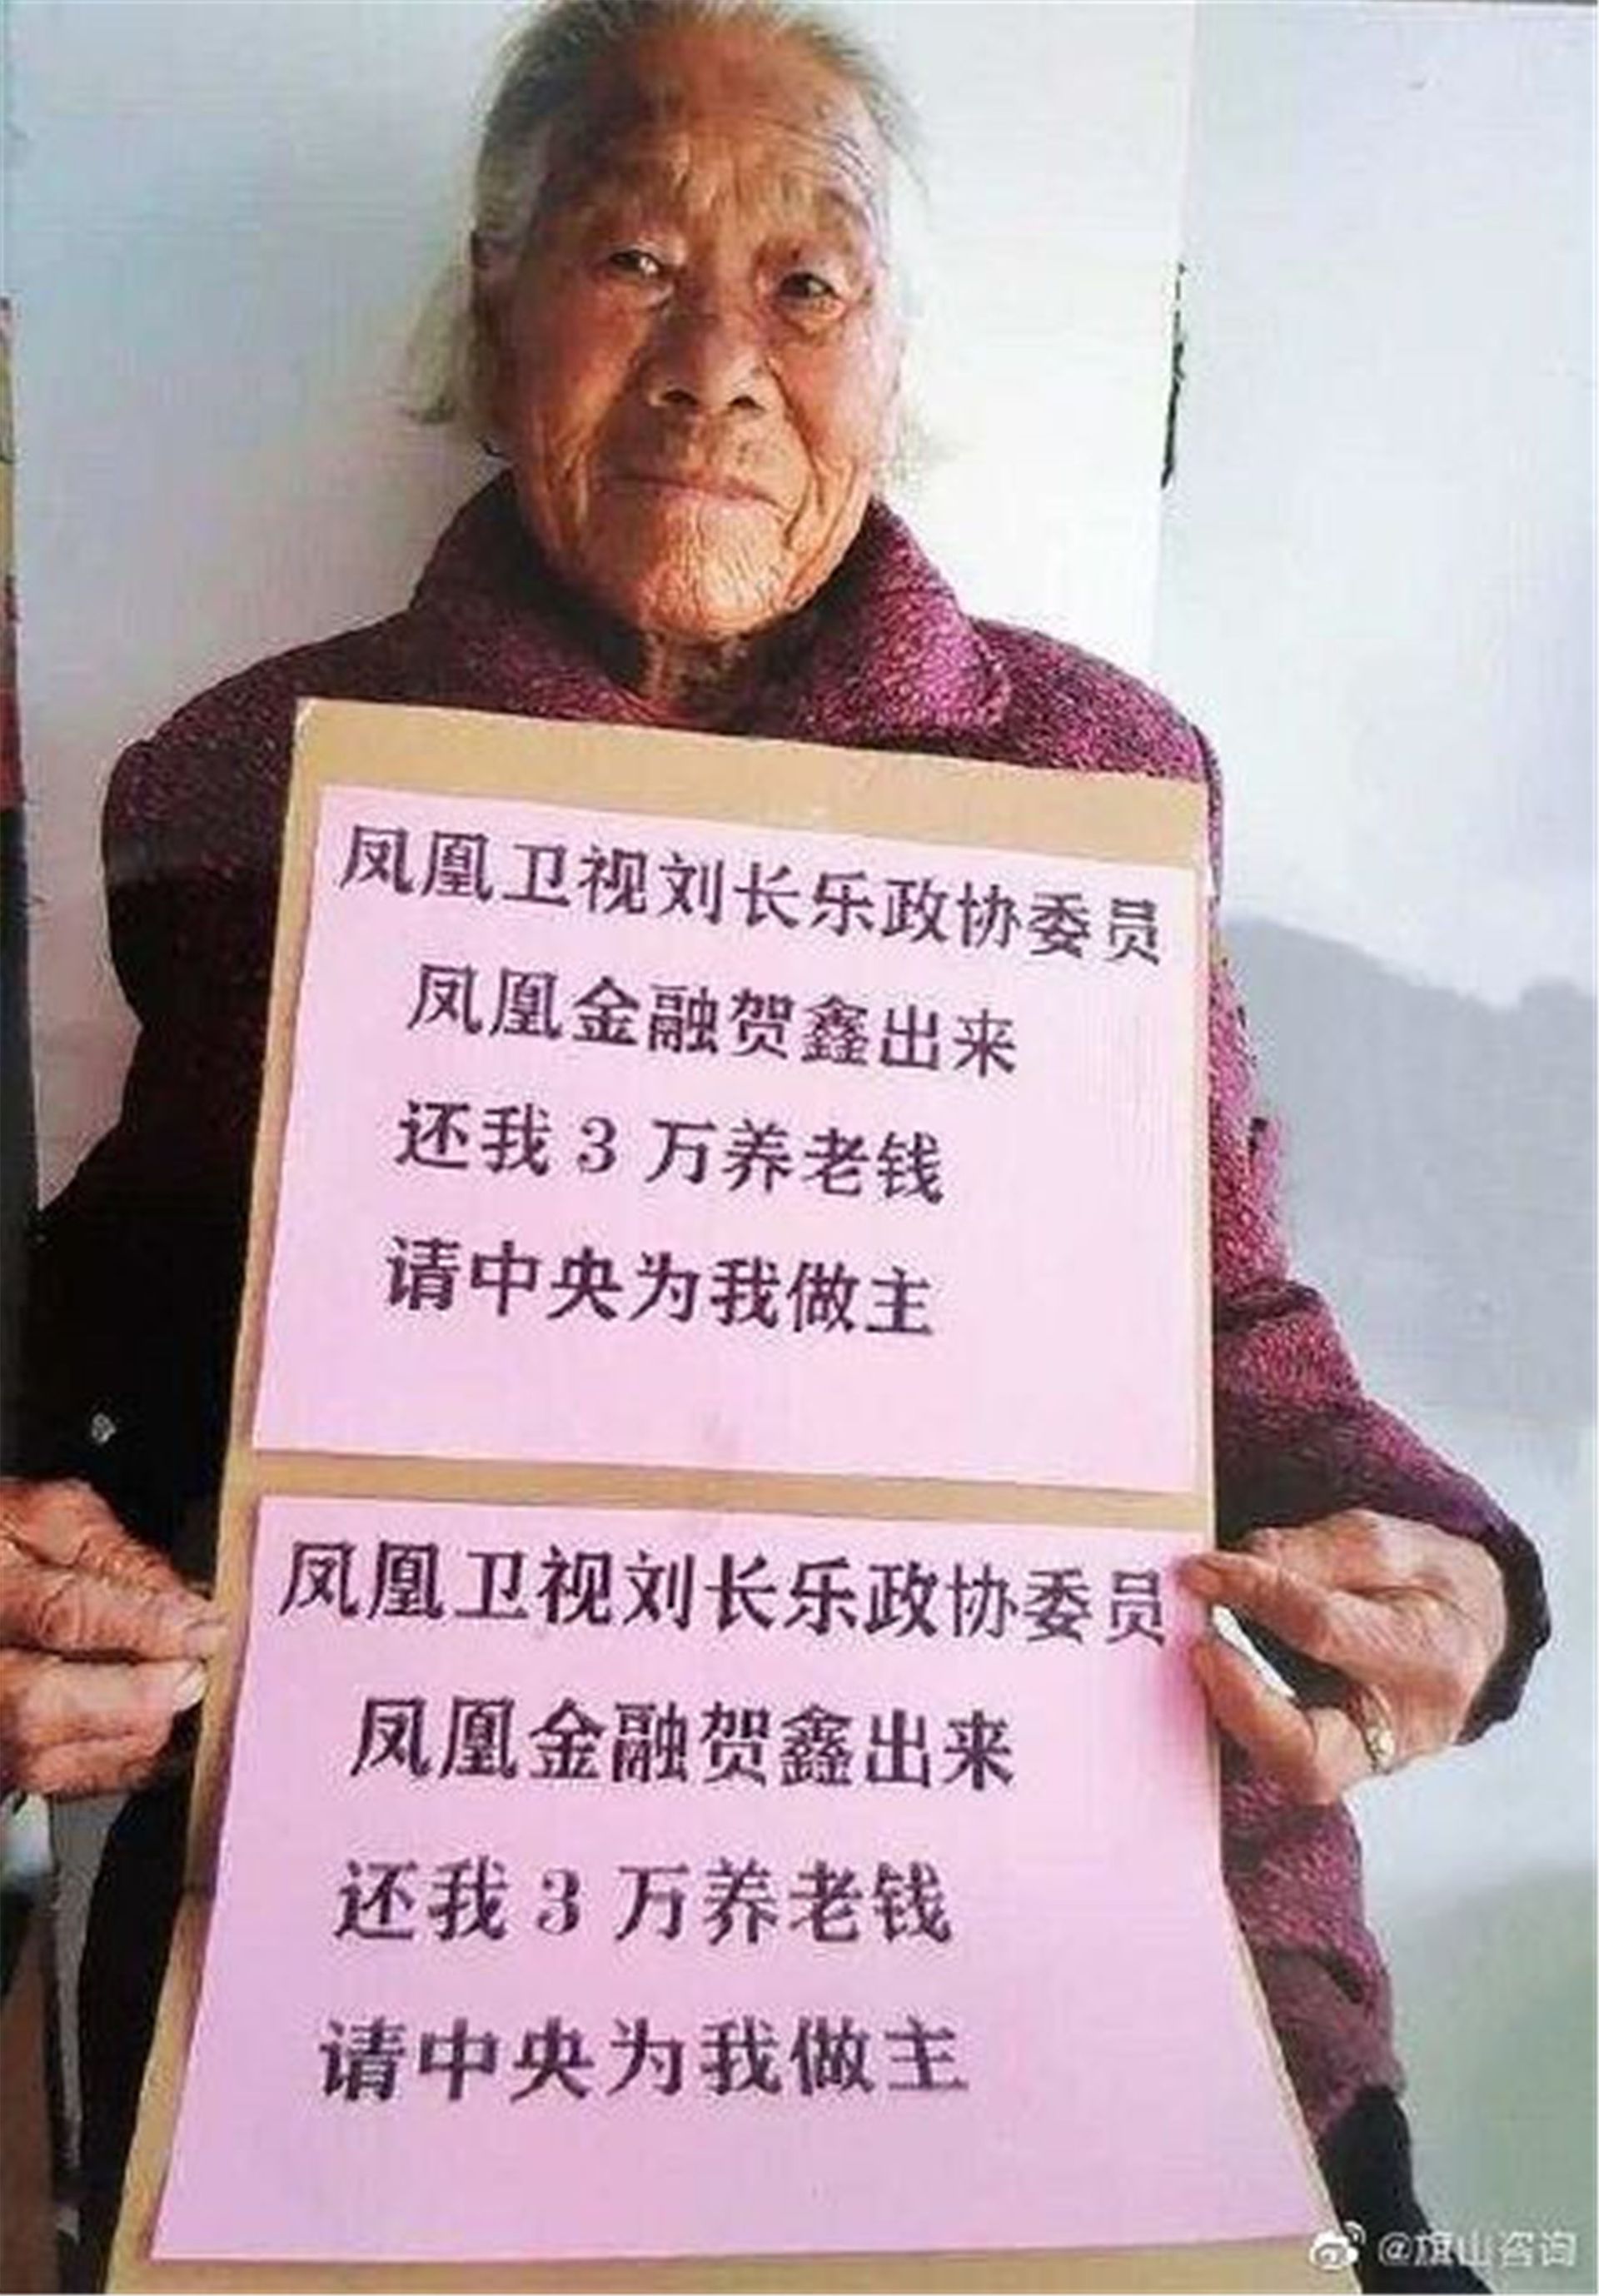 凤凰卫视刘长乐政协委员
凤凰金融贺鑫出来
还我3万养老钱
请中央为我做主
凤凰卫视刘长乐政协委员
凤凰金融贺鑫出来
还我3万养老钱
请中央为我做主
@旗山咨询